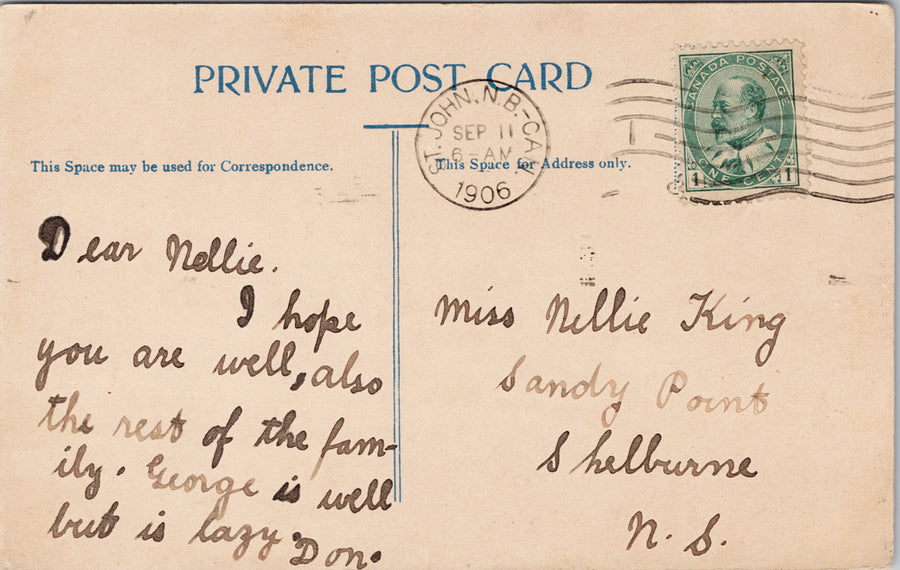 PRIVATE POST CARD
This Space may be used for Correspondence.
This Space for Address only.
ST. JOHN, N.B.-CAN.
SEP 11
6-AM
1906
CANADA POSTAGE
ONE CENT
1 1
Dear Nellie.
I hope
you are well, also
the rest of the fam-
ily. George is well
but is lazy.
Don.
Miss Nellie King
Sandy Point
Shelburne
N. S.